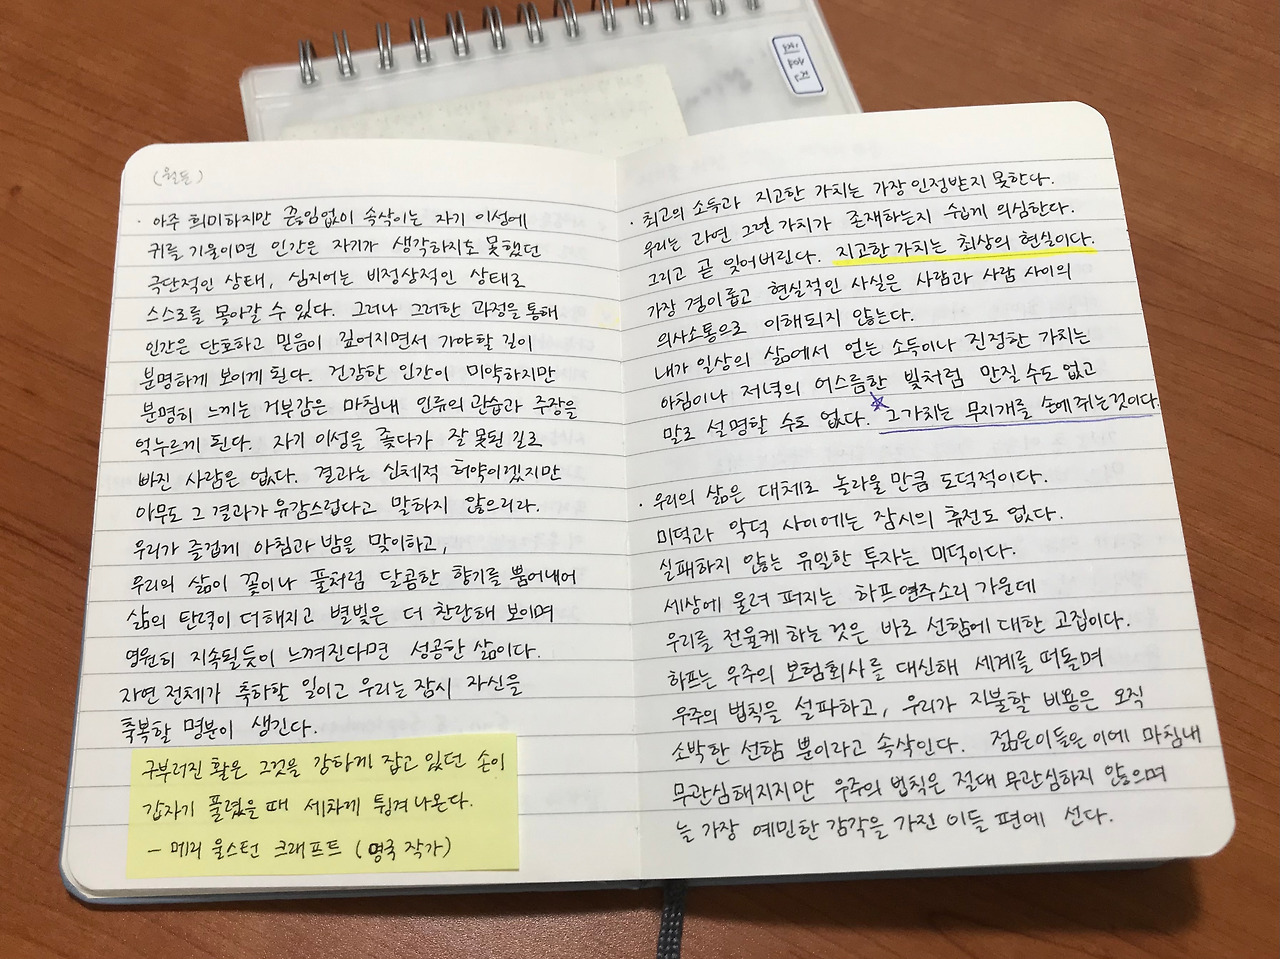 (월든)
· 아주 희미하지만 끊임없이 속삭이는 자기 이성에
귀를 기울이면 인간은 자기가 생각하지도 못했던
극단적인 상태, 심지어는 비정상적인 상태로
스스로를 몰아갈 수 있다. 그러나 그러한 과정을 통해
인간은 단호하고 믿음이 깊어지면서 가야할 길이
분명하게 보이게 된다. 건강한 인간이 미약하지만
분명히 느끼는 거부감은 마침내 인류의 관습과 주장을
억누르게 된다. 자기 이성을 좇다가 잘 못된 길로
빠진 사람은 없다. 결과는 신체적 허약이겠지만
아무도 그 결과가 유감스럽다고 말하지 않으리라.
우리가 즐겁게 아침과 밤을 맞이하고,
우리의 삶이 꽃이나 풀처럼 달콤한 향기를 뿜어내어
삶의 탄력이 더해지고 별빛은 더 찬란해 보이며
영원히 지속될듯이 느껴진다면 성공한 삶이다.
자연 전체가 축하할 일이고 우리는 잠시 자신을
축복할 명분이 생긴다.
구부러진 활은 그것을 강하게 잡고 있던 손이
갑자기 풀렸을 때 세차게 튕겨나온다.
- 메리 울스턴 크래프트 (영국 작가)
· 최고의 소득과 지고한 가치는 가장 인정받지 못한다.
우리는 과연 그런 가치가 존재하는지 쉽게 의심한다.
그리고 곧 잊어버린다. 지고한 가치는 최상의 현실이다.
가장 경이롭고 현실적인 사실은 사람과 사람 사이의
의사소통으로 이해되지 않는다.
내가 일상의 삶에서 얻는 소득이나 진정한 가치는
아침이나 저녁의 어스름한 빛처럼 만질 수도 없고
말로 설명할 수도 없다. 그가치는 무지개를 손에 쥐는것이다.
· 우리의 삶은 대체로 놀라울 만큼 도덕적이다.
미덕과 악덕 사이에는 잠시의 휴전도 없다.
실패하지 않는 유일한 투자는 미덕이다.
세상에 울려 퍼지는 하프연주소리 가운데
우리를 전율케 하는 것은 바로 선함에 대한 고집이다.
하프는 우주의 보험회사를 대신해 세계를 떠돌며
우주의 법칙을 설파하고, 우리가 지불할 비용은 오직
소박한 선함 뿐이라고 속삭인다. 젊은이들은 이에 마침내
무관심해지지만 우주의 법칙은 절대 무관심하지 않으며
늘 가장 예민한 감각을 가진 이들 편에 선다.